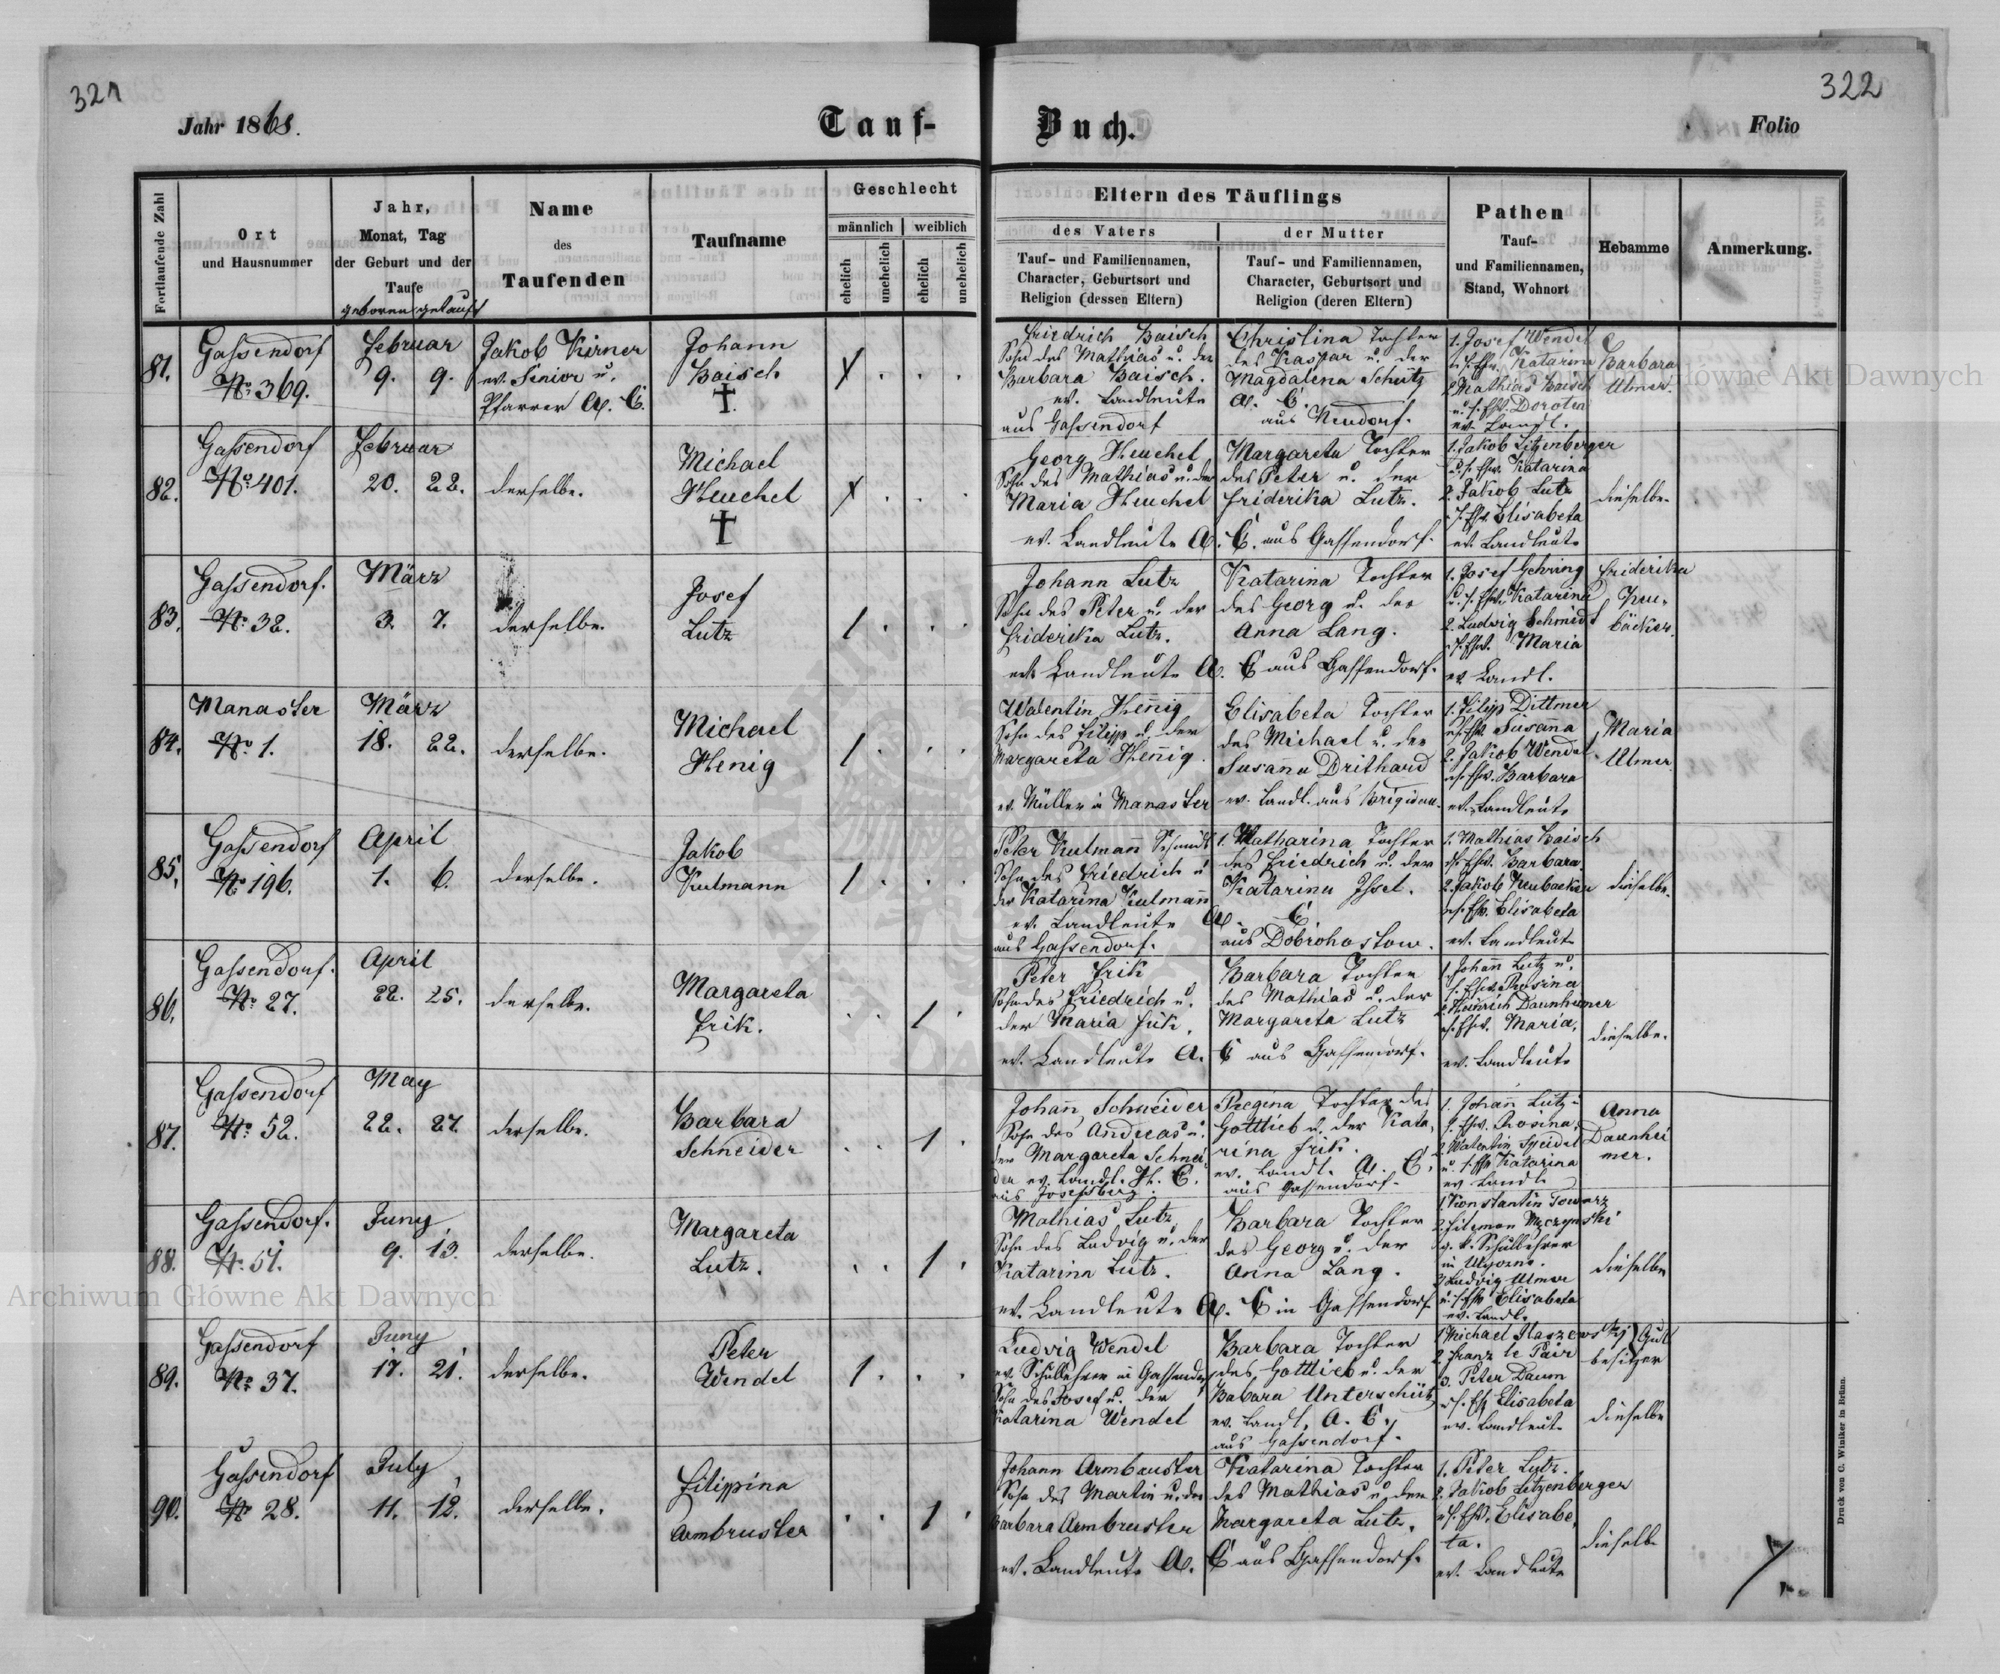 321
322
Jahr 1868.
Tauf-
Buch.
Folio
Fortlaufende Zahl
Ort
und Hausnummer
Jahr,
Monat, Tag
der Geburt und der
Taufe
geboren getauft
Name
des
Taufenden
Taufname
Geschlecht
männlich
weiblich
ehelich
unehelich
ehelich
unehelich
Eltern des Täuflings
des Vaters
der Mutter
Tauf- und Familiennamen,
Character, Geburtsort und
Religion (dessen Eltern)
Tauf- und Familiennamen,
Character, Geburtsort und
Religion (deren Eltern)
Pathen
Tauf-
und Familiennamen,
Stand, Wohnort
Hebamme
Anmerkung.
81.
Gassendorf
No. 369.
Februar
9. 9.
Jakob Kirner
ev. Senior u.
Pfarrer A. C.
Johann
Baisch
†
Friedrich Baisch
Sohn des Mathias u. der
Barbara Baisch.
ev. Landleute
aus Gassendorf
Christina Tochter
des Kaspar u. der
Magdalena Schütz
A. C.
aus Neudorf.
1. Josef Wendel
u. s. Ehw. Katarina
2. Mathias Baisch
u. s. Ehw. Dorotea
ev. Landl.
Barbara
Ulmer.
82.
Gassendorf
No. 401.
Februar
20. 22.
derselbe.
Michael
Heuchel
†
Georg Heuchel
Sohn des Mathias u. der
Maria Heuchel
ev. Landleute A.
Margareta Tochter
des Peter u. der
Friderika Lutz.
C. aus Gassendorf.
1. Jakob Litzenberger
u. s. Ehw. Katarina
2. Jakob Lutz
s. Ehw. Elisabeta
ev. Landleute
dieselbe.
83.
Gassendorf.
No. 32.
März
3. 7.
derselbe.
Josef
Lutz
Johann Lutz
Sohn des Peter u. der
Friderika Lutz.
ev. Landleute A.
Katarina Tochter
des Georg u. der
Anna Lang.
C aus Gassendorf.
1. Josef Gehring
u. s. Ehw. Katarina
2. Ludwig Schmidt
s. Ehw. Maria
ev. Landl.
Friderika
Neu-
bäcker.
84.
Manaster
No. 1.
März
18. 22.
derselbe.
Michael
Henig
Walentin Hennig
Sohn des Filipp u. der
Margareta Hennig.
ev. Müller in Manaster
Elisabeta Tochter
des Michael u. der
Susanna Drithard
ev. Landl. aus Brigidau.
1. Filipp Dittmer
s. Ehw. Susanna
2. Jakob Wendel
s. Ehw. Barbara
ev. Landleute
Maria
Ulmer.
85.
Gassendorf
No. 196.
April
1. 6.
derselbe.
Jakob
Kulmann
Peter Kulmann Schmidt
Sohn des Friedrich u
der Katarina Kulmann
ev. Landleute
aus Gassendorf.
Katharina Tochter
des Friedrich u. der
Katarina Issel.
A. C.
aus Dobrohostow.
1. Mathias Baisch
s. Ehw. Barbara
2. Jakob Neubacker
s. Ehw. Elisabeta
ev. Landleute
dieselbe.
86.
Gassendorf.
No. 27.
April
22. 25.
derselbe.
Margareta
Frik.
Peter Frik
Sohn des Friedrich u.
der Maria Frik.
ev. Landleute A.
Barbara Tochter
des Mathias u. der
Margareta Lutz
C aus Gassendorf.
1. Johann Lutz u.
s. Ehw. Rosina
2. Heinrich Daunheimer
s. Ehw. Maria,
ev. Landleute
dieselbe.
87.
Gassendorf
No. 52.
May
22. 27.
derselbe.
Barbara
Schneider
Johann Schneider
Sohn des Andreas u.
der Margareta Schnei
der ev. Landl. H. C.
aus Josefsberg.
Regina Tochter des
Gottlieb u. der Kata,
rina Frik.
ev. Landl. A. C.
aus Gassendorf.
1. Johann Lutz u
s. Ehw. Rosina,
2. Walentin Speidel
u. s. Ehw Katarina
ev. Landl.
Anna
Daunhei
mer.
88.
Gassendorf.
No. 51.
Juny
9. 13.
derselbe.
Margareta
Lutz.
Mathias Lutz
Sohn des Ludvig u. der
Katarina Lutz.
ev. Landleute A.
Barbara Tochter
des Georg u. der
Anna Lang.
C in Gassendorf
1. Konstantin
g. k. Schullehrer
in
3. Ludvig Ulmer
u. s. Ehw Elisabeta
ev. Landl.
dieselbe
89.
Gassendorf
No. 37.
Juny
17. 21.
derselbe.
Peter
Wendel
Ludvig Wendel
ev. Schullehrer in Gassendorf
Sohn des Josef u. der
Katarina Wendel
Barbara Tochter
des Gottlieb u. der
Babara Unterschütz
ev. Landl. A. C.
aus Gassendorf.
1. Michael
Guts
besitzer
2. Franz le Pair
3. Peter Daum
s. Eh Elisabeta
ev. Landleute
dieselbe
90.
Gassendorf
No 28.
July
11. 12.
derselbe.
Filippina
Armbruster
Johann Armbruster
Sohn des Martin u. der
Barbara Armbruster
ev. Landleute A.
Katarina Tochter
des Mathias u. der
Margareta Lutz.
C aus Gassendorf.
1. Peter Lutz.
2. Jakob Litzenberger
s. Ehw. Elisabe,
ta.
ev. Landleute
dieselbe
Druck von C. Winiker in Brünn.
Archiwum Główne Akt Dawnych
Główne Akt Dawnych